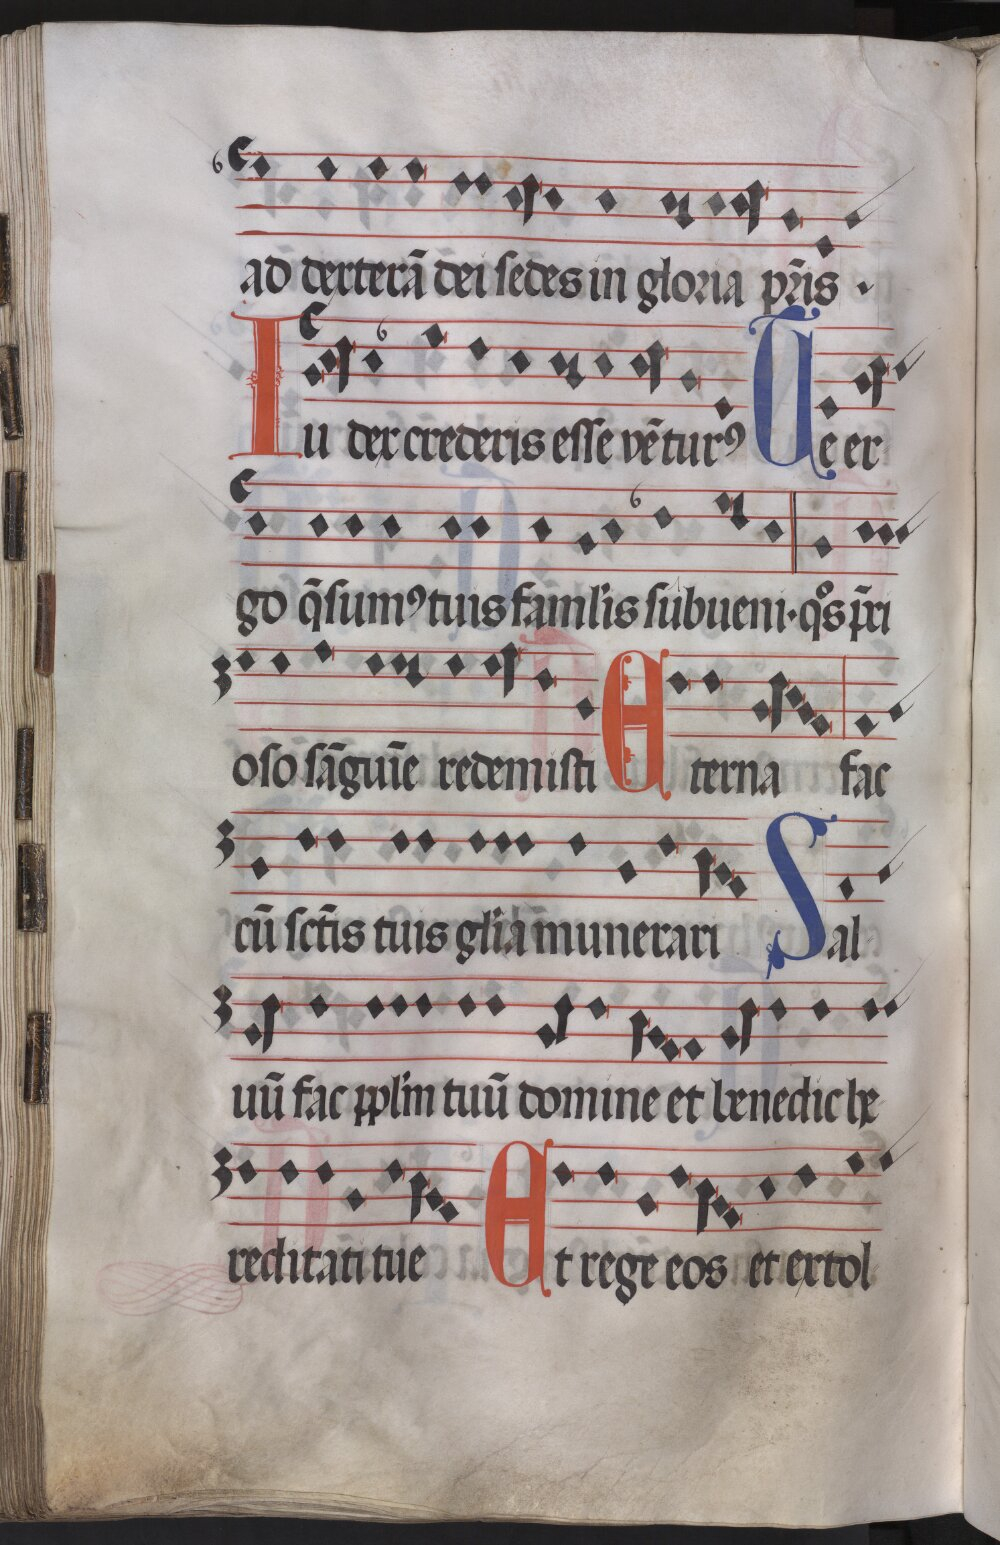 ad dexterā dei sedes in gloria pr̄is ·
Iudex crederis esse vētur⁹ Te er
go q̄sum⁹ tuis fāmlīs subueni· qͦs p̄ci
oso sāguīe redemisti Eterna fac
cū sctīs tuis glīā munerari Sal
uū fac pplm̄ tuū domine et benedic he
reditati tue Et rege eos et extol